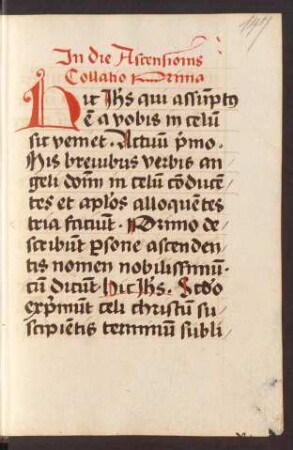 In die Ascensionis
Collatio Prima
Hic Ihs qui assu̅pt9
e̅ a vobis in celu̅
sic veniet. Actuu̅ p̅mo.
His brevibus verbis an
geli dom̅ in celu̅ co̅duce̅
tes et ap̅los alloque̅tes
tria faciu̅t. Primo de
scribu̅t p̲sone ascenden
tis nomen nobilissimu̅.
cu̅ dicu̅t Hic Ihs. Scd̅o
exp̅mu̅t celi christu̅ su
scipie̅tis terminu̅ subli